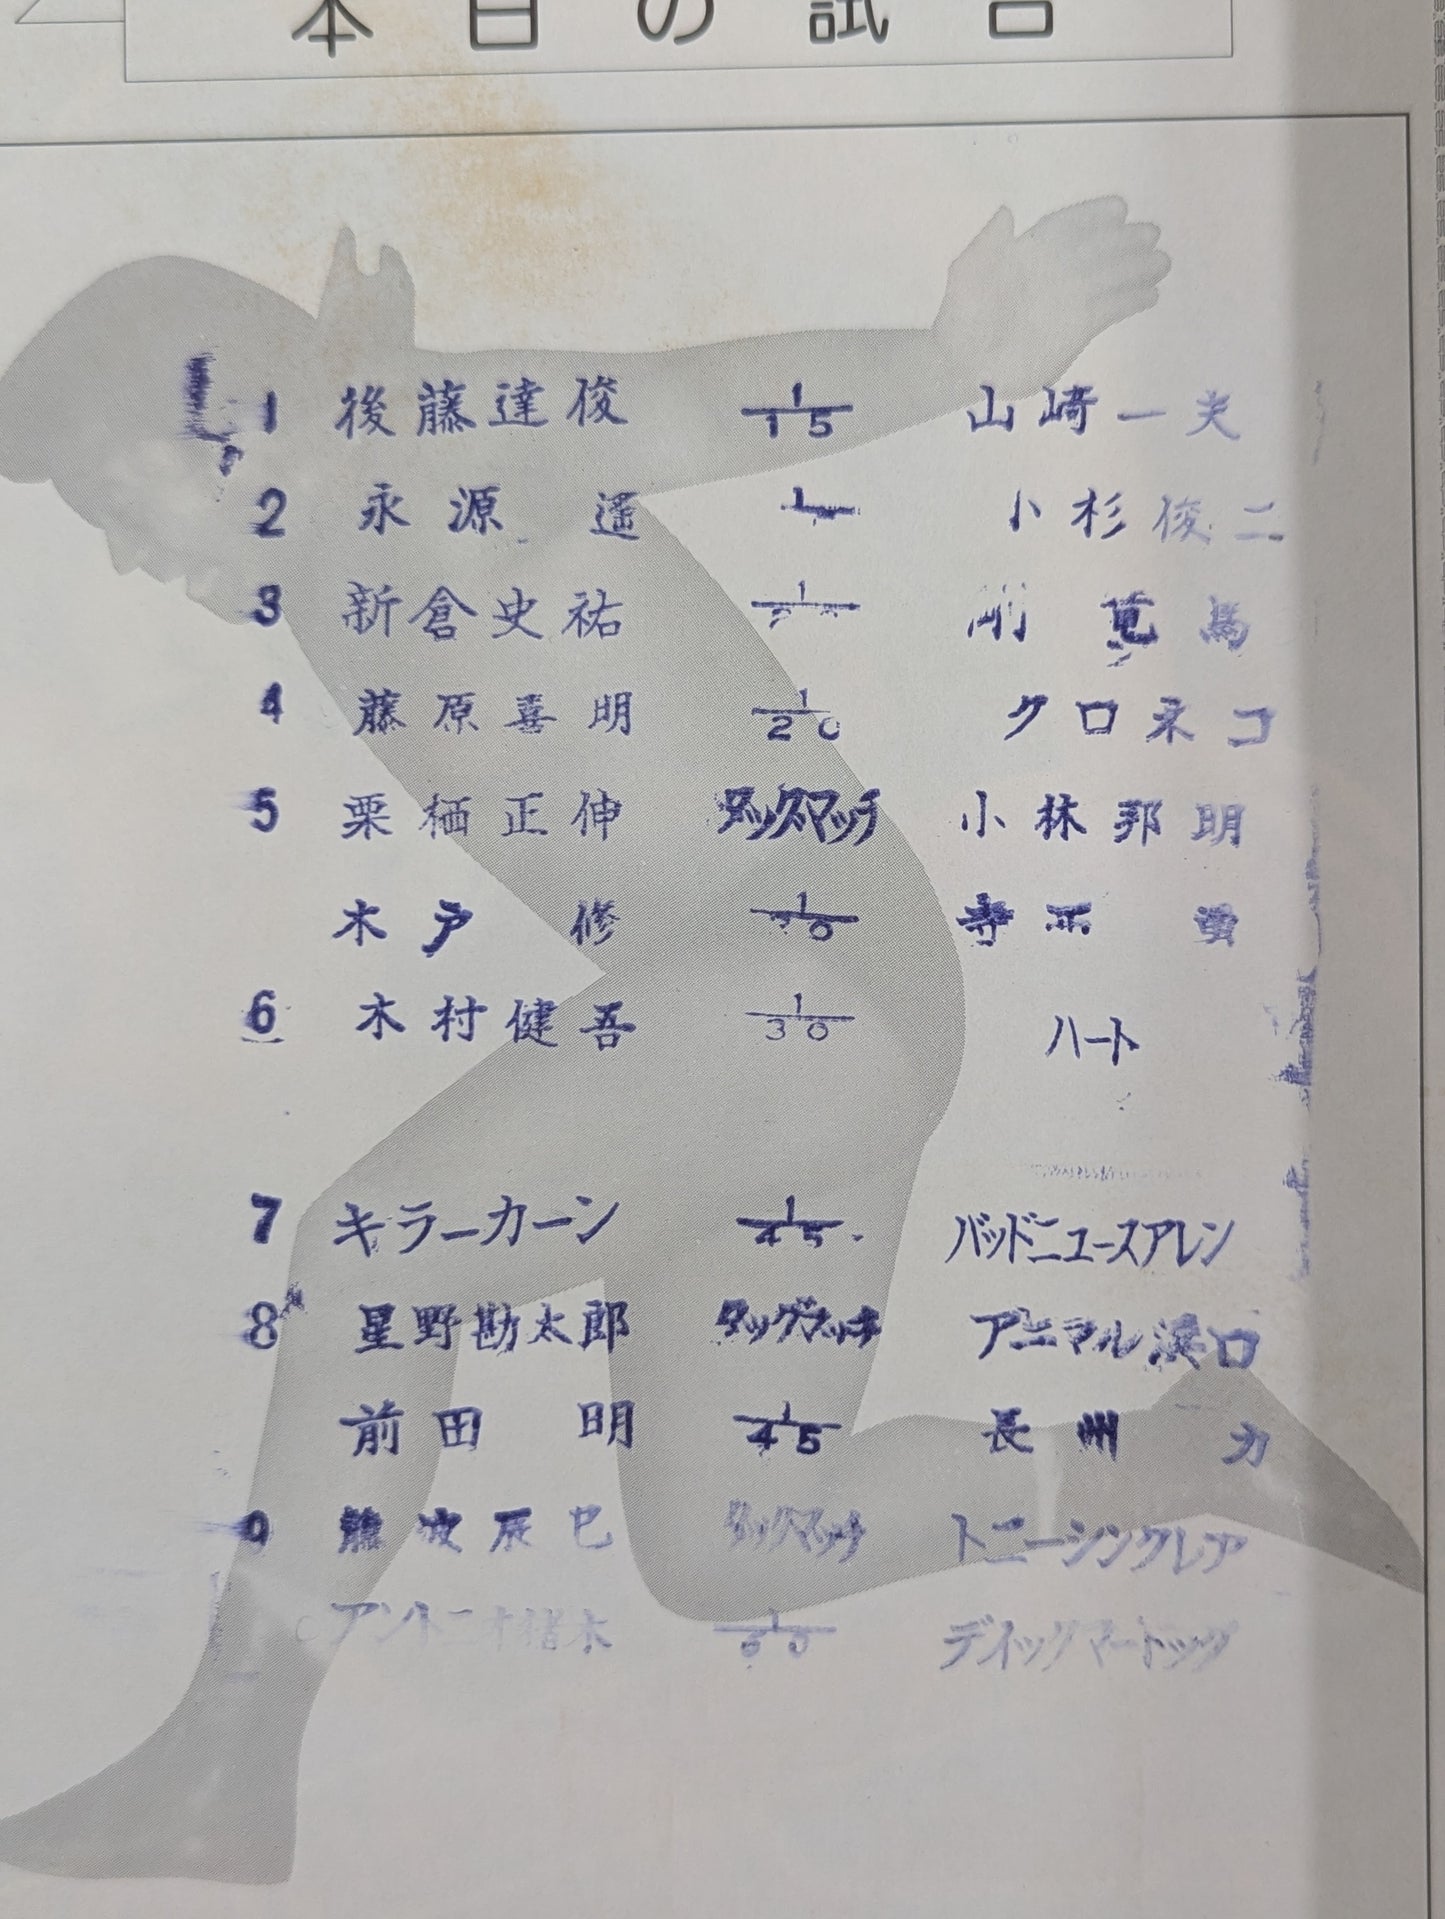 本日の試合
1 後藤達俊 1/15 山崎一夫
2 永源 遥 1 小杉俊二
3 新倉史祐 1 剛 竜馬
4 藤原喜明 1/20 クロネコ
5 栗栖正伸 タッグマッチ 小林邦明
木戸 修 1 寺西 勇
6 木村健吾 1/30 ハート
7 キラーカーン 1/45 バッドニュースアレン
8 星野勘太郎 タッグマッチ アニマル浜口
前田 明 1/45 長州 力
9 藤波辰巳 タッグマッチ トニーシンクレア
アントニオ猪木 1/60 デイック